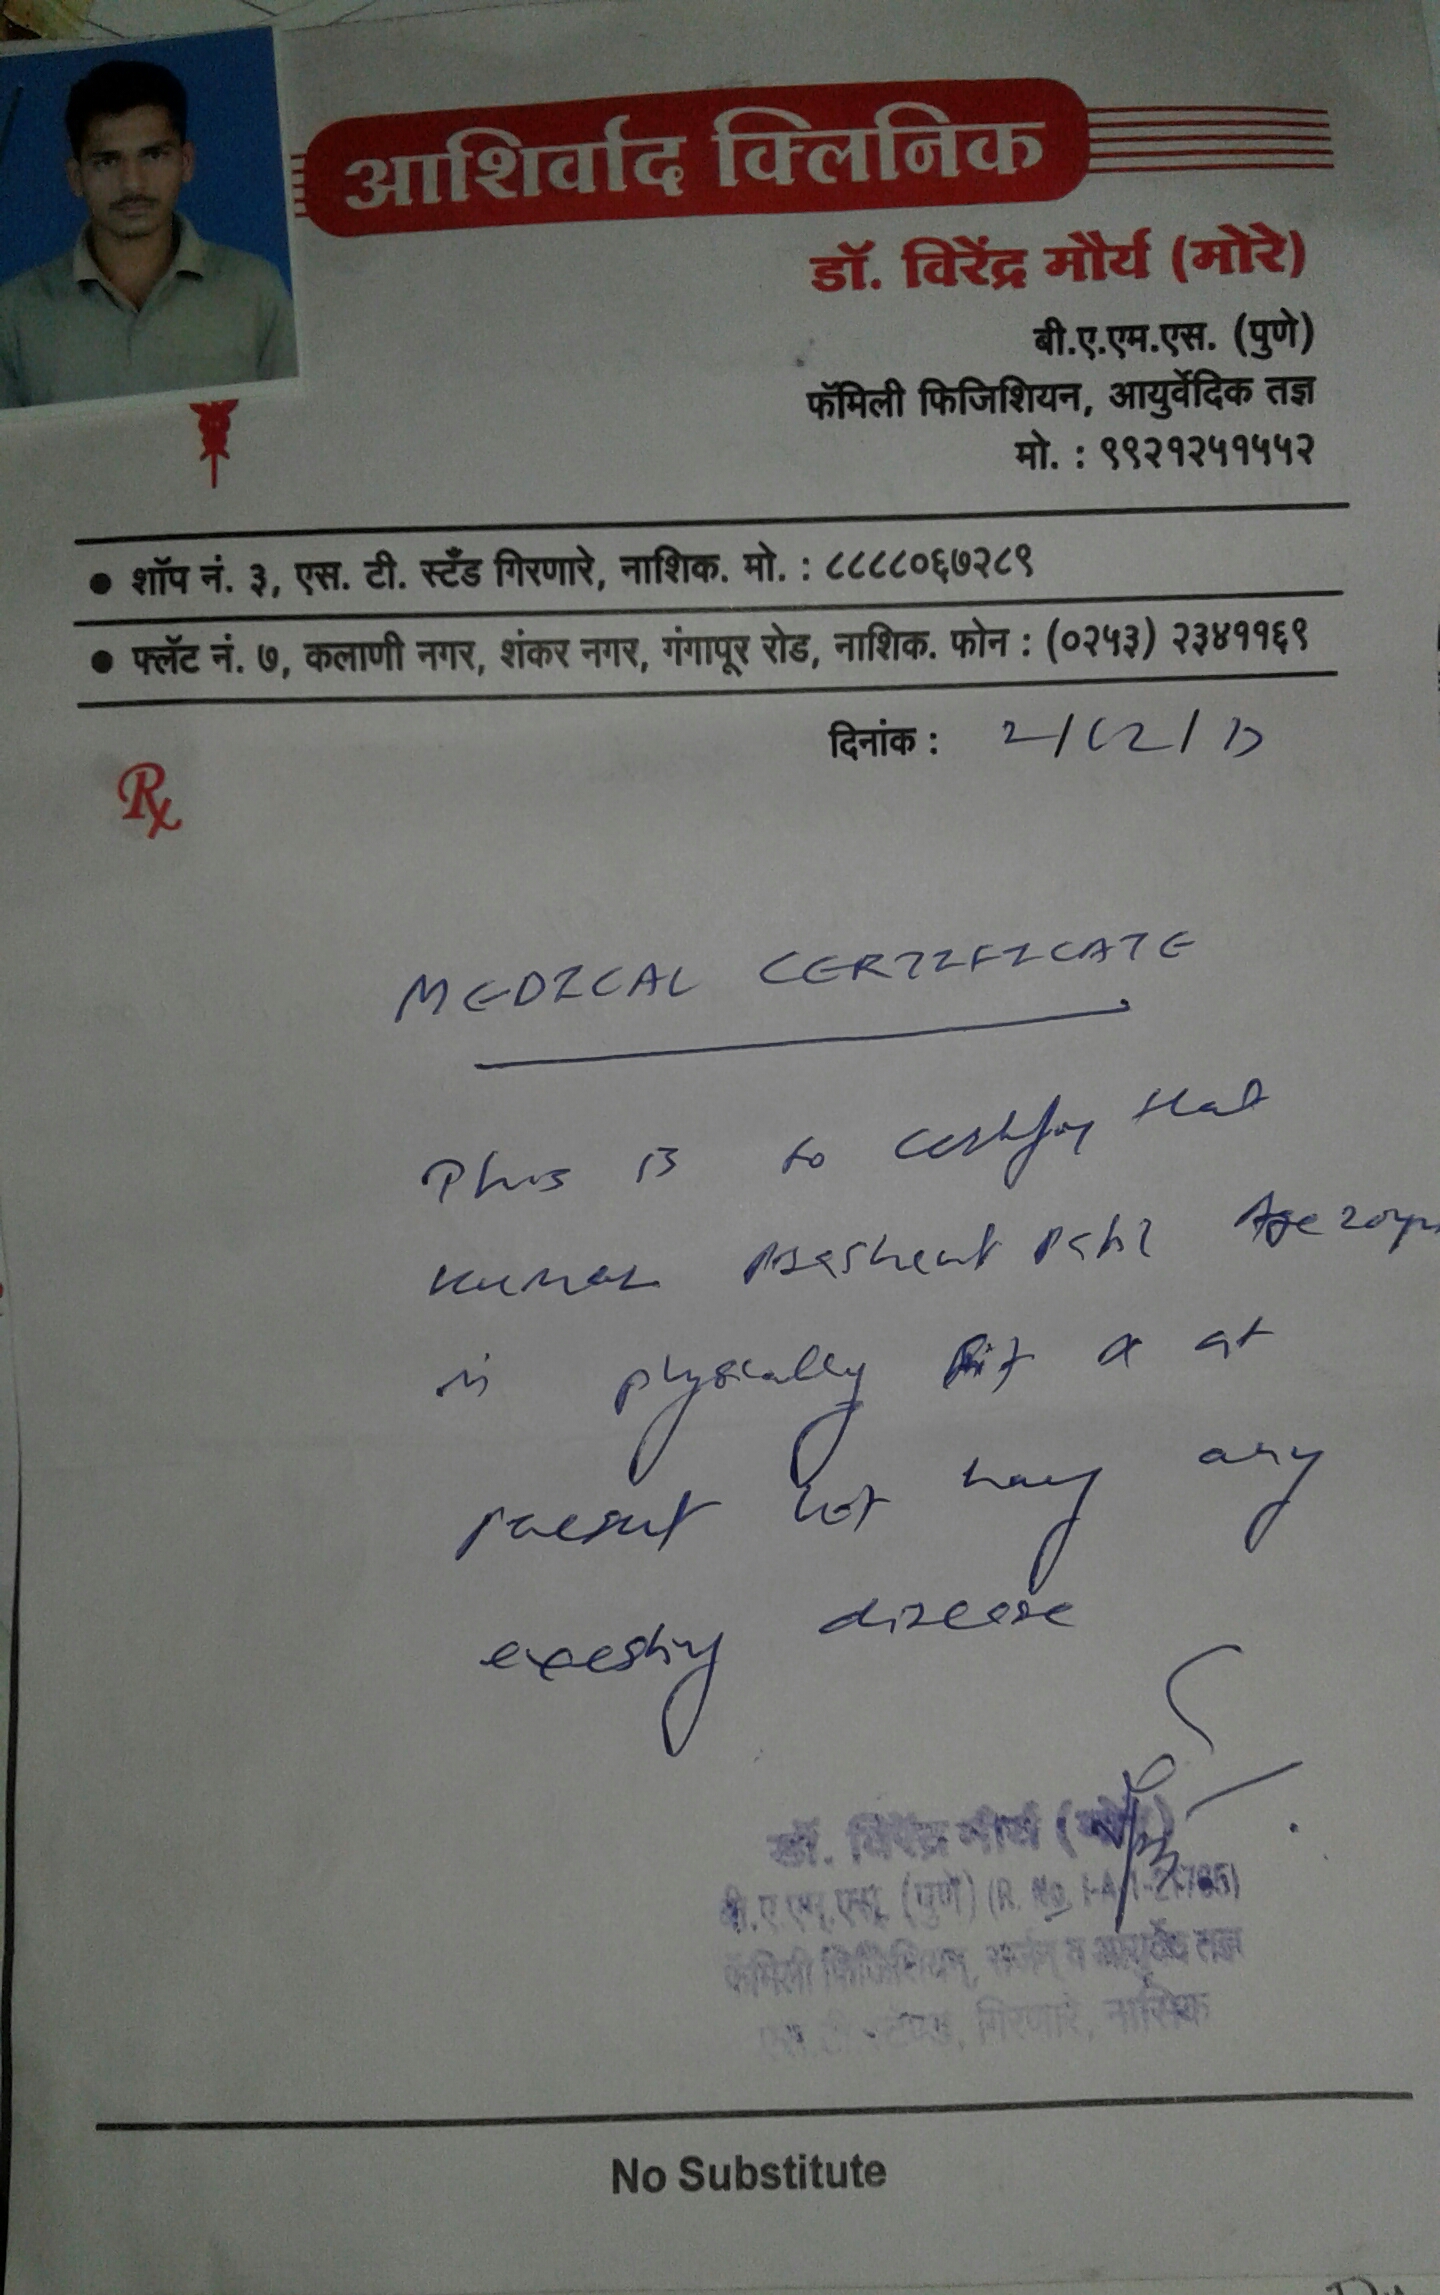 आशिर्वाद क्लिनिक
डॉ. विरेंद्र मौर्य (मोरे)
बी.ए.एम.एस. (पुणे)
फॅमिली फिजिशियन, आयुर्वेदिक तज्ञ
मो. : ९९२१२५१५५२
● शॉप नं. ३, एस. टी. स्टँड गिरणारे, नाशिक. मो. : ८८८८०६७२८९
● फ्लॅट नं. ७, कलाणी नगर, शंकर नगर, गंगापूर रोड, नाशिक. फोन : (०२५३) २३४११६९
दिनांक :
Rx
MEDICAL CERTIFICATE
This is to certify that
Kumar Patil Age 20yrs
is physically fit & at
present not having any
exesting disease
डॉ. विरेंद्र मौर्य (मोरे)
बी.ए.एम्.एस्. (पुणे) (R. No.
फॅमिली फिजिशियन, सर्जन व आयुर्वेद तज्ञ
गिरणारे, नासिक
No Substitute